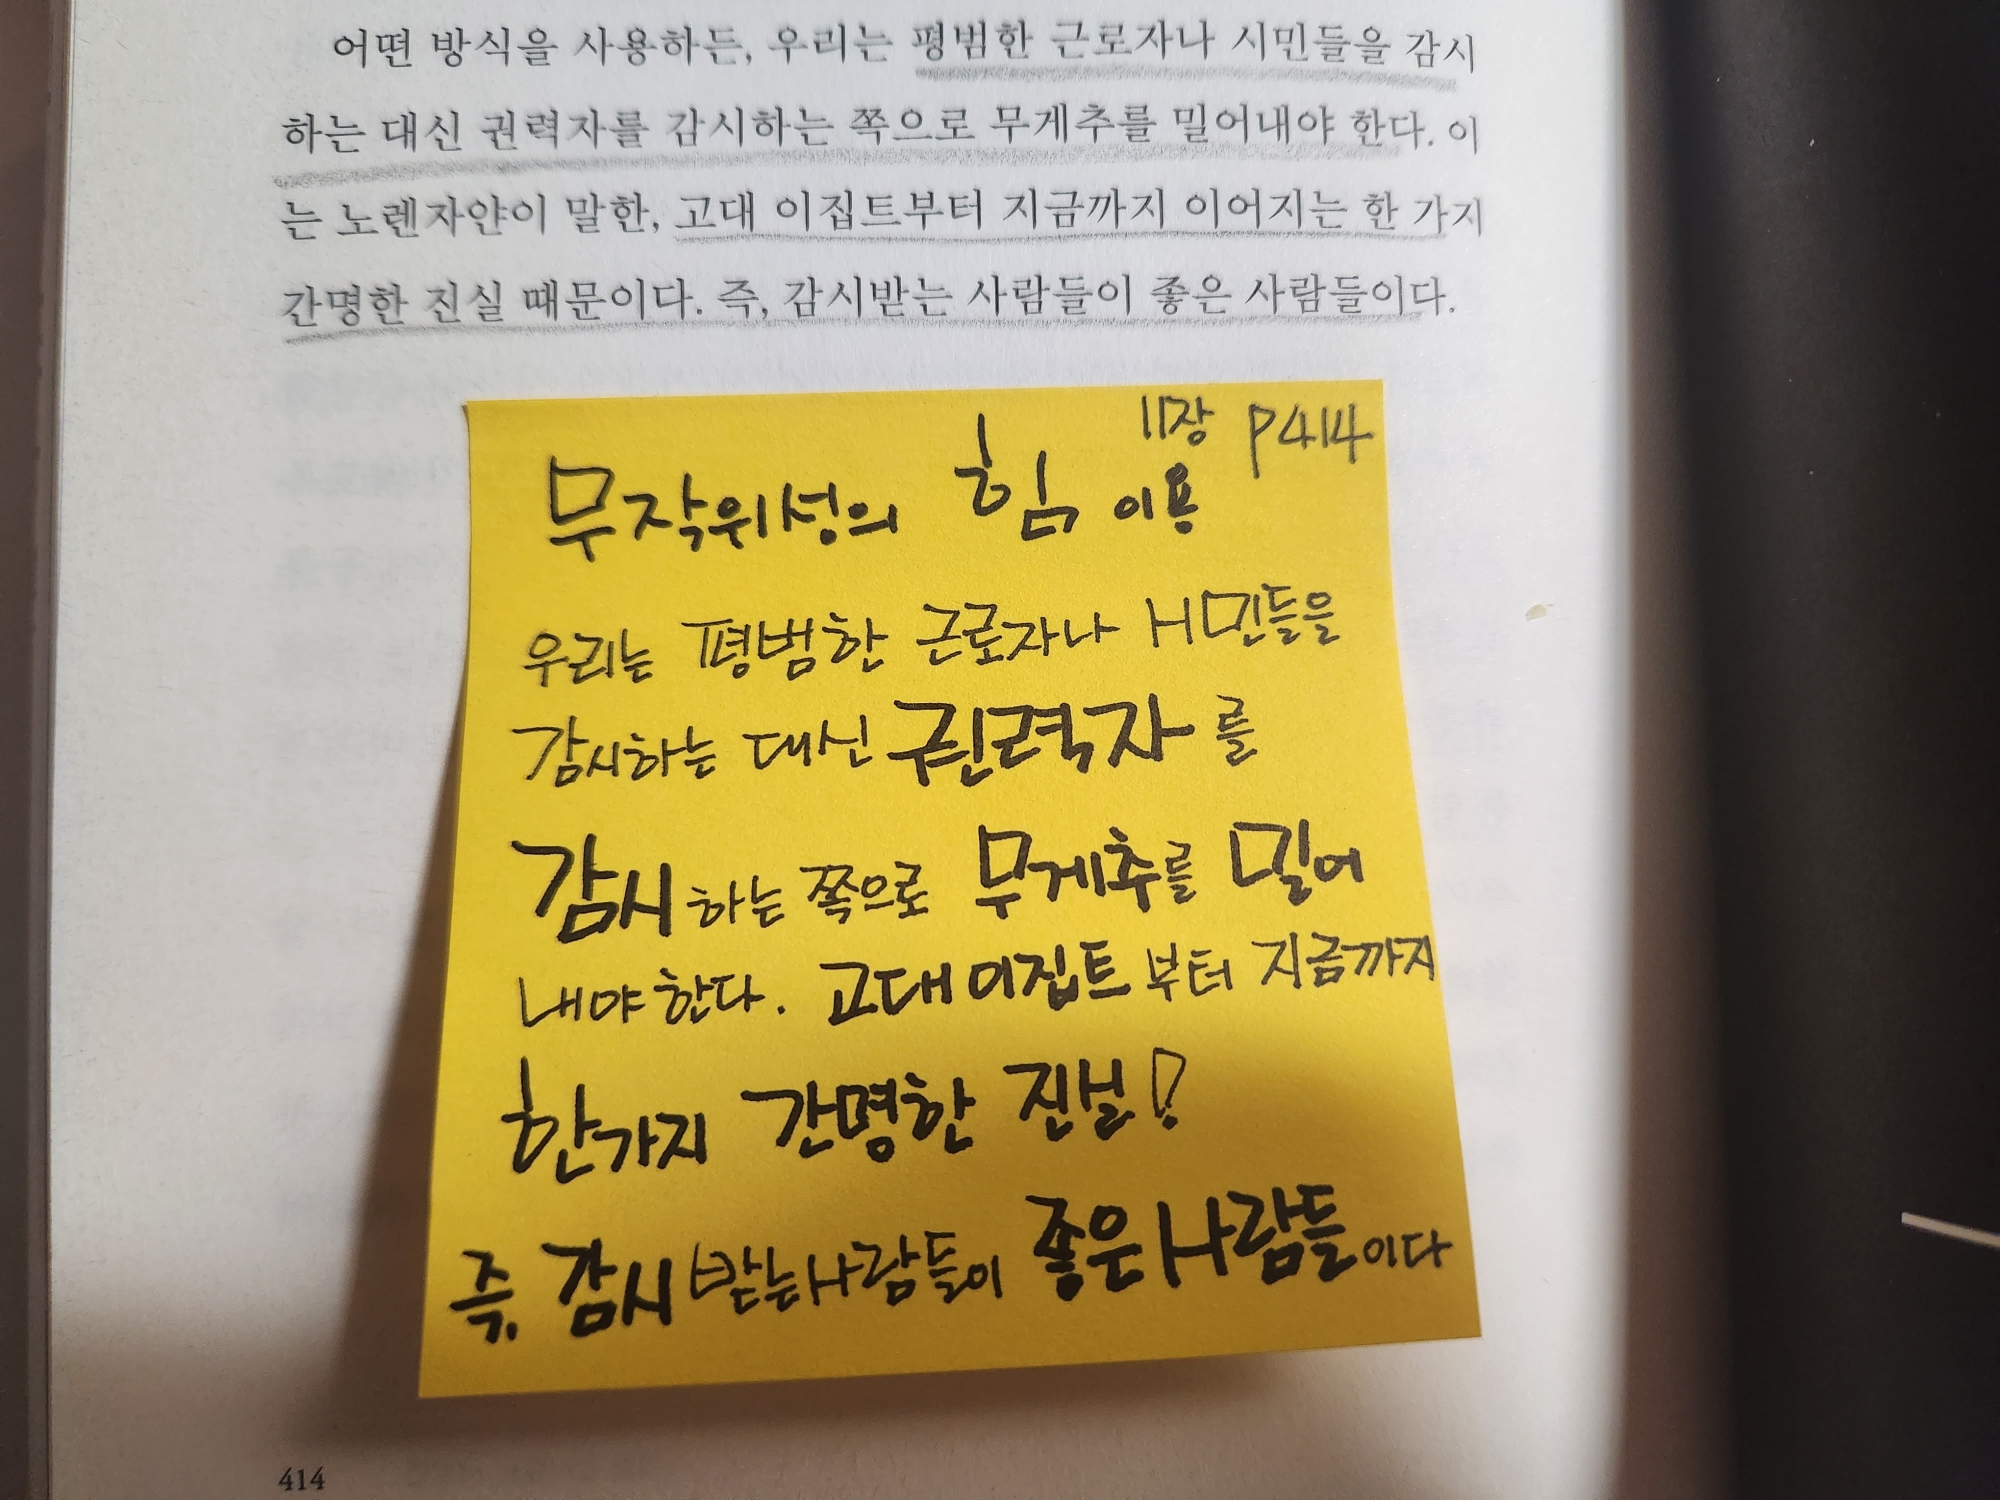 어떤 방식을 사용하든, 우리는 평범한 근로자나 시민들을 감시
하는 대신 권력자를 감시하는 쪽으로 무게추를 밀어내야 한다. 이
는 노렌자얀이 말한, 고대 이집트부터 지금까지 이어지는 한 가지
간명한 진실 때문이다. 즉, 감시받는 사람들이 좋은 사람들이다.
11장 P414
무작위성의 힘 이용
우리는 평범한 근로자나 시민들을
감시하는 대신 권력자를
감시하는 쪽으로 무게추를 밀어
내야 한다. 고대 이집트부터 지금까지
한가지 간명한 진실!
즉, 감시받는 사람들이 좋은 사람들이다
414